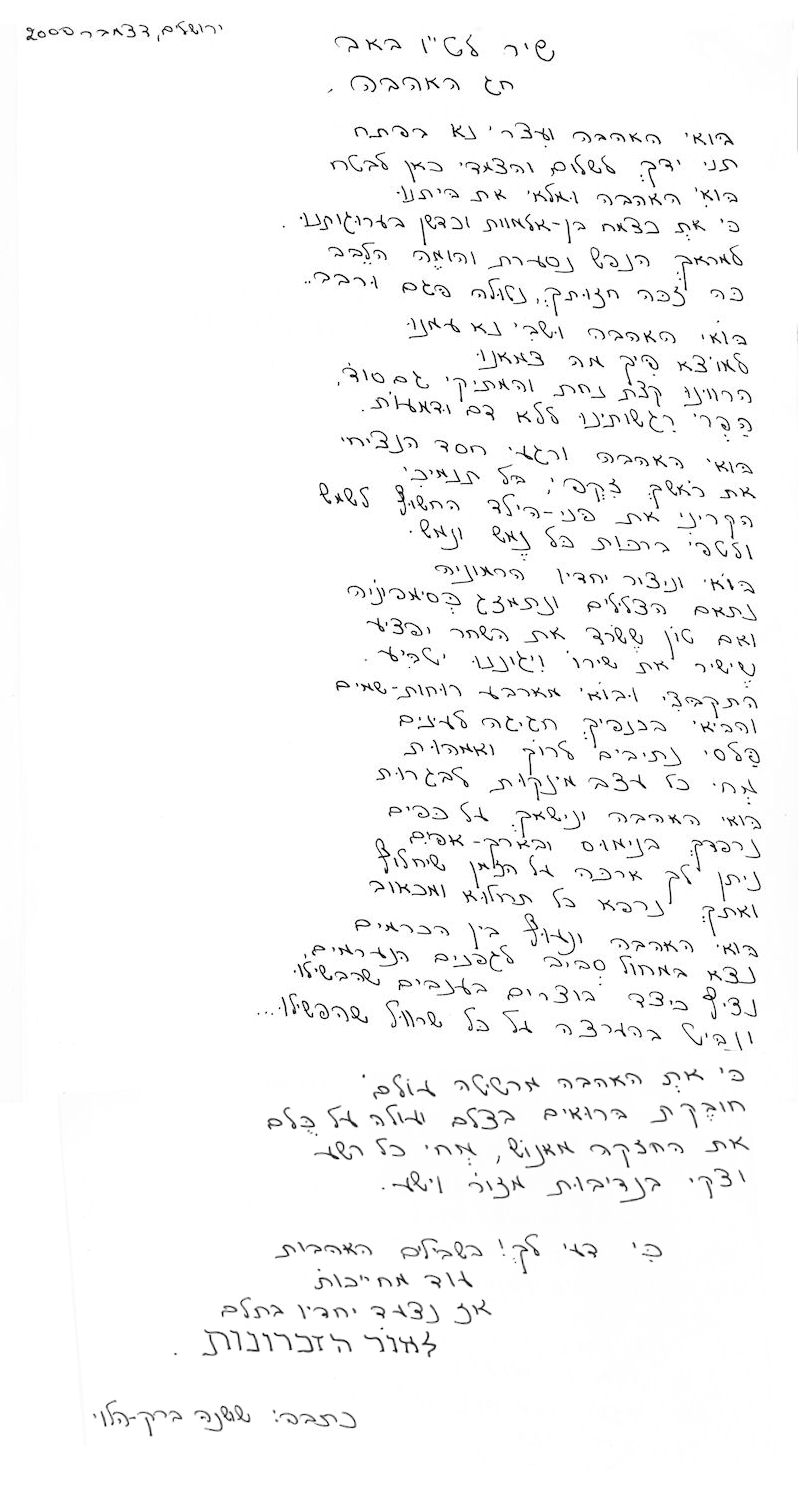 ירושלים, דצמבר 2000
שיר לט"ו באב
חג האהבה.
בּוֹאי האהבה ועִצרי נא בפתח
תני ידךְ לשלום, והצמדי כאן לבטח
בּוֹאי האהבה וּמלאי את ביתנוּ
כי אַתְּ כצמח בן-אלמוות וכדשן בערוגותנוּ.
למראךְ הנפש נסערת והומה הלֵבב
כּה זכּה חזותךְ, נטולה פגם ורבב..
בּוֹאי האהבה וּשבי נא עמנוּ
למוֹצא פּיךְ מה צמאנוּ
הרווינוּ קצת נחת והמתיקי גם סוֹד,
הַפְרי רגשותינוּ ללא דם ודמעוֹת.
בּוֹאי האהבה ורגעי חסד הנציחי
את רֹאשךְ זִקפי, בל תנמיכי
הקריני את פני-הילד החשוּף לשמש
ולטפי ברכות כל נֶמש ונמש.
בּוֹאי וניצור יחדיו הרמוניה
נתאם הצלילים ונתמזג כְּסימפוֹניה
ואם טוֹן ששׂרד את השחר יפציע
שֶישיר את שירוֹ ויגוננוּ יטבּיע.
התקבּצי וּבוֹאי מארבע רוחות-שמים
והביאי בכנפיךְ חגיגה לעינים
פַּלסי נתיבים לרוֹךְ ואמהוּת
מְחי כל עצב מינקות לבגרוּת
בּוֹאי האהבה ונישאךְ על כפּים
נרפדךְ בנימוּס ובאֹרך-אפּים
ניתן לךְ ארכּה על הזמן שיחלוֹף
ואתךְ נרפא כל תחלוּא ומכאוֹב
בּוֹאי האהבה ונעוּף בין הכרמים
נצא במחול סָביב לגפנים הנערמים,
נציף כיצד בּוֹצרים בענבים שהבשילוּ
ונבּיט בהערצה על כל שרווּל שהפשילוּ...
כי אַתְּ האהבה מרטיטה עוֹלם,
חוֹבקת ברוּאים בצלם ועולה על כֻּלם
את החזקה מאנוֹש, מְחי כל רשע
וצקי בנדיבוּת מזוֹר וישע.
כּי דעי לךְ! בשבילים האהבות
עוד מחייכוֹת
אז נצעד יחדיו בתלם
לאוֹר הזכרונות.
כתבה: שושנה ברק-הלוי